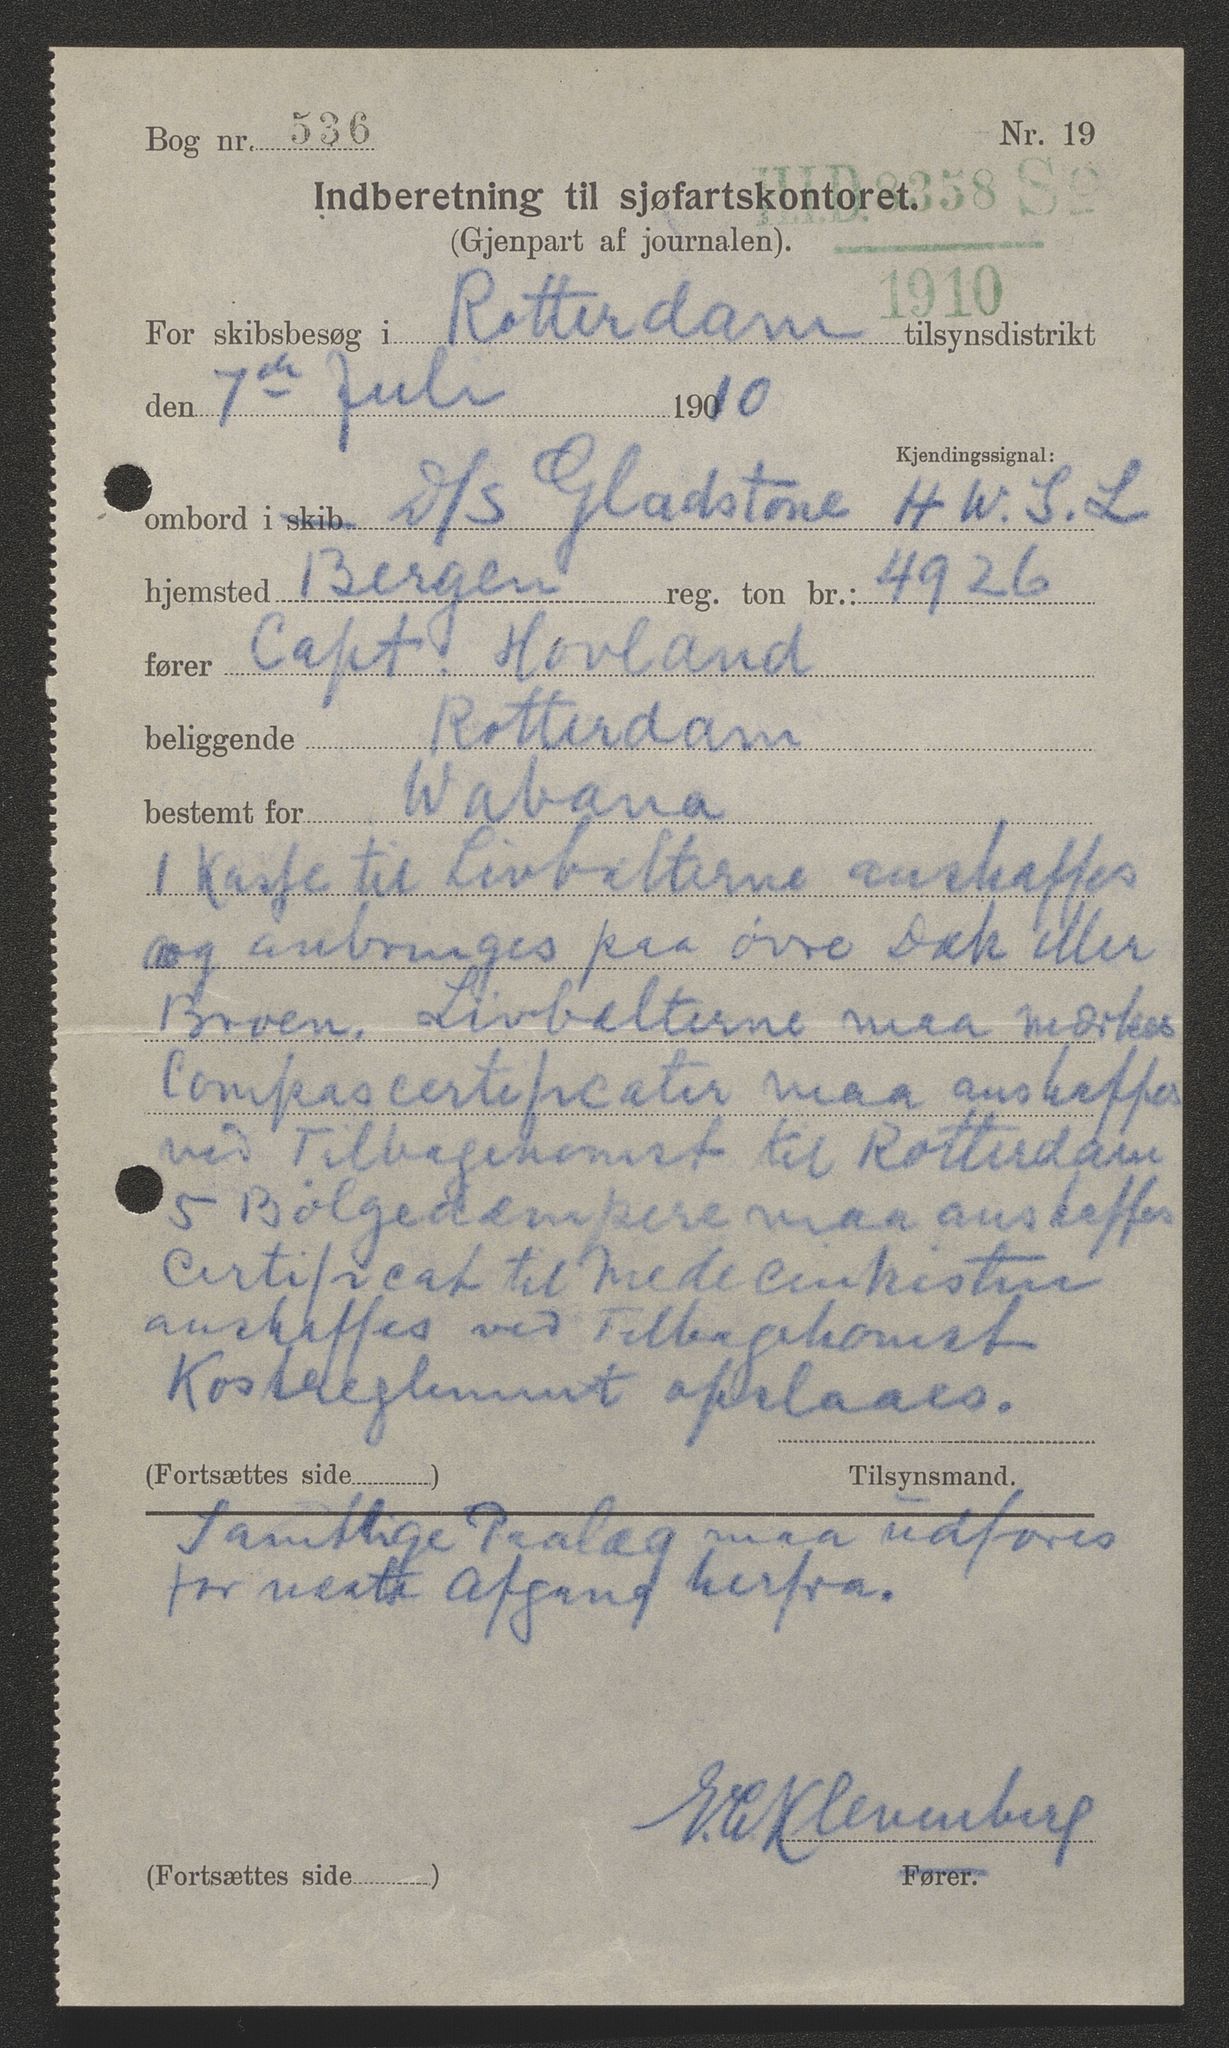 Bog nr. 536 Nr. 19
H.I.D. 8358 Sø
1910
Indberetning til sjøfartskontoret.
(Gjenpart af journalen).
For skibsbesøg i Rotterdam tilsynsdistrikt
den 7de Juli 19010
Kjendingssignal:
ombord i skib D/S Gladstone H W. S. L
hjemsted Bergen reg. ton br.: 4926
fører Capt. Hovland
beliggende Rotterdam
bestemt for Wabana
1 Kasse til Livbælterne anskaffes
og anbringes paa øvre Dæk eller
Broen. Livbælterne maa mærkes
Compascertificater maa anskaffes
ved Tilbagekomst til Rotterdam
5 Bølgedæmpere maa anskaffes
Certificat til Medecinkisten
anskaffes ved Tilbagekomst
Kostreglement opslaaes.
(Fortsættes side ) Tilsynsmand.
Samtlige Paalæg maa udføres
før næste Afgang herfra.
E.C. Klevenberg
(Fortsættes side ) Fører.